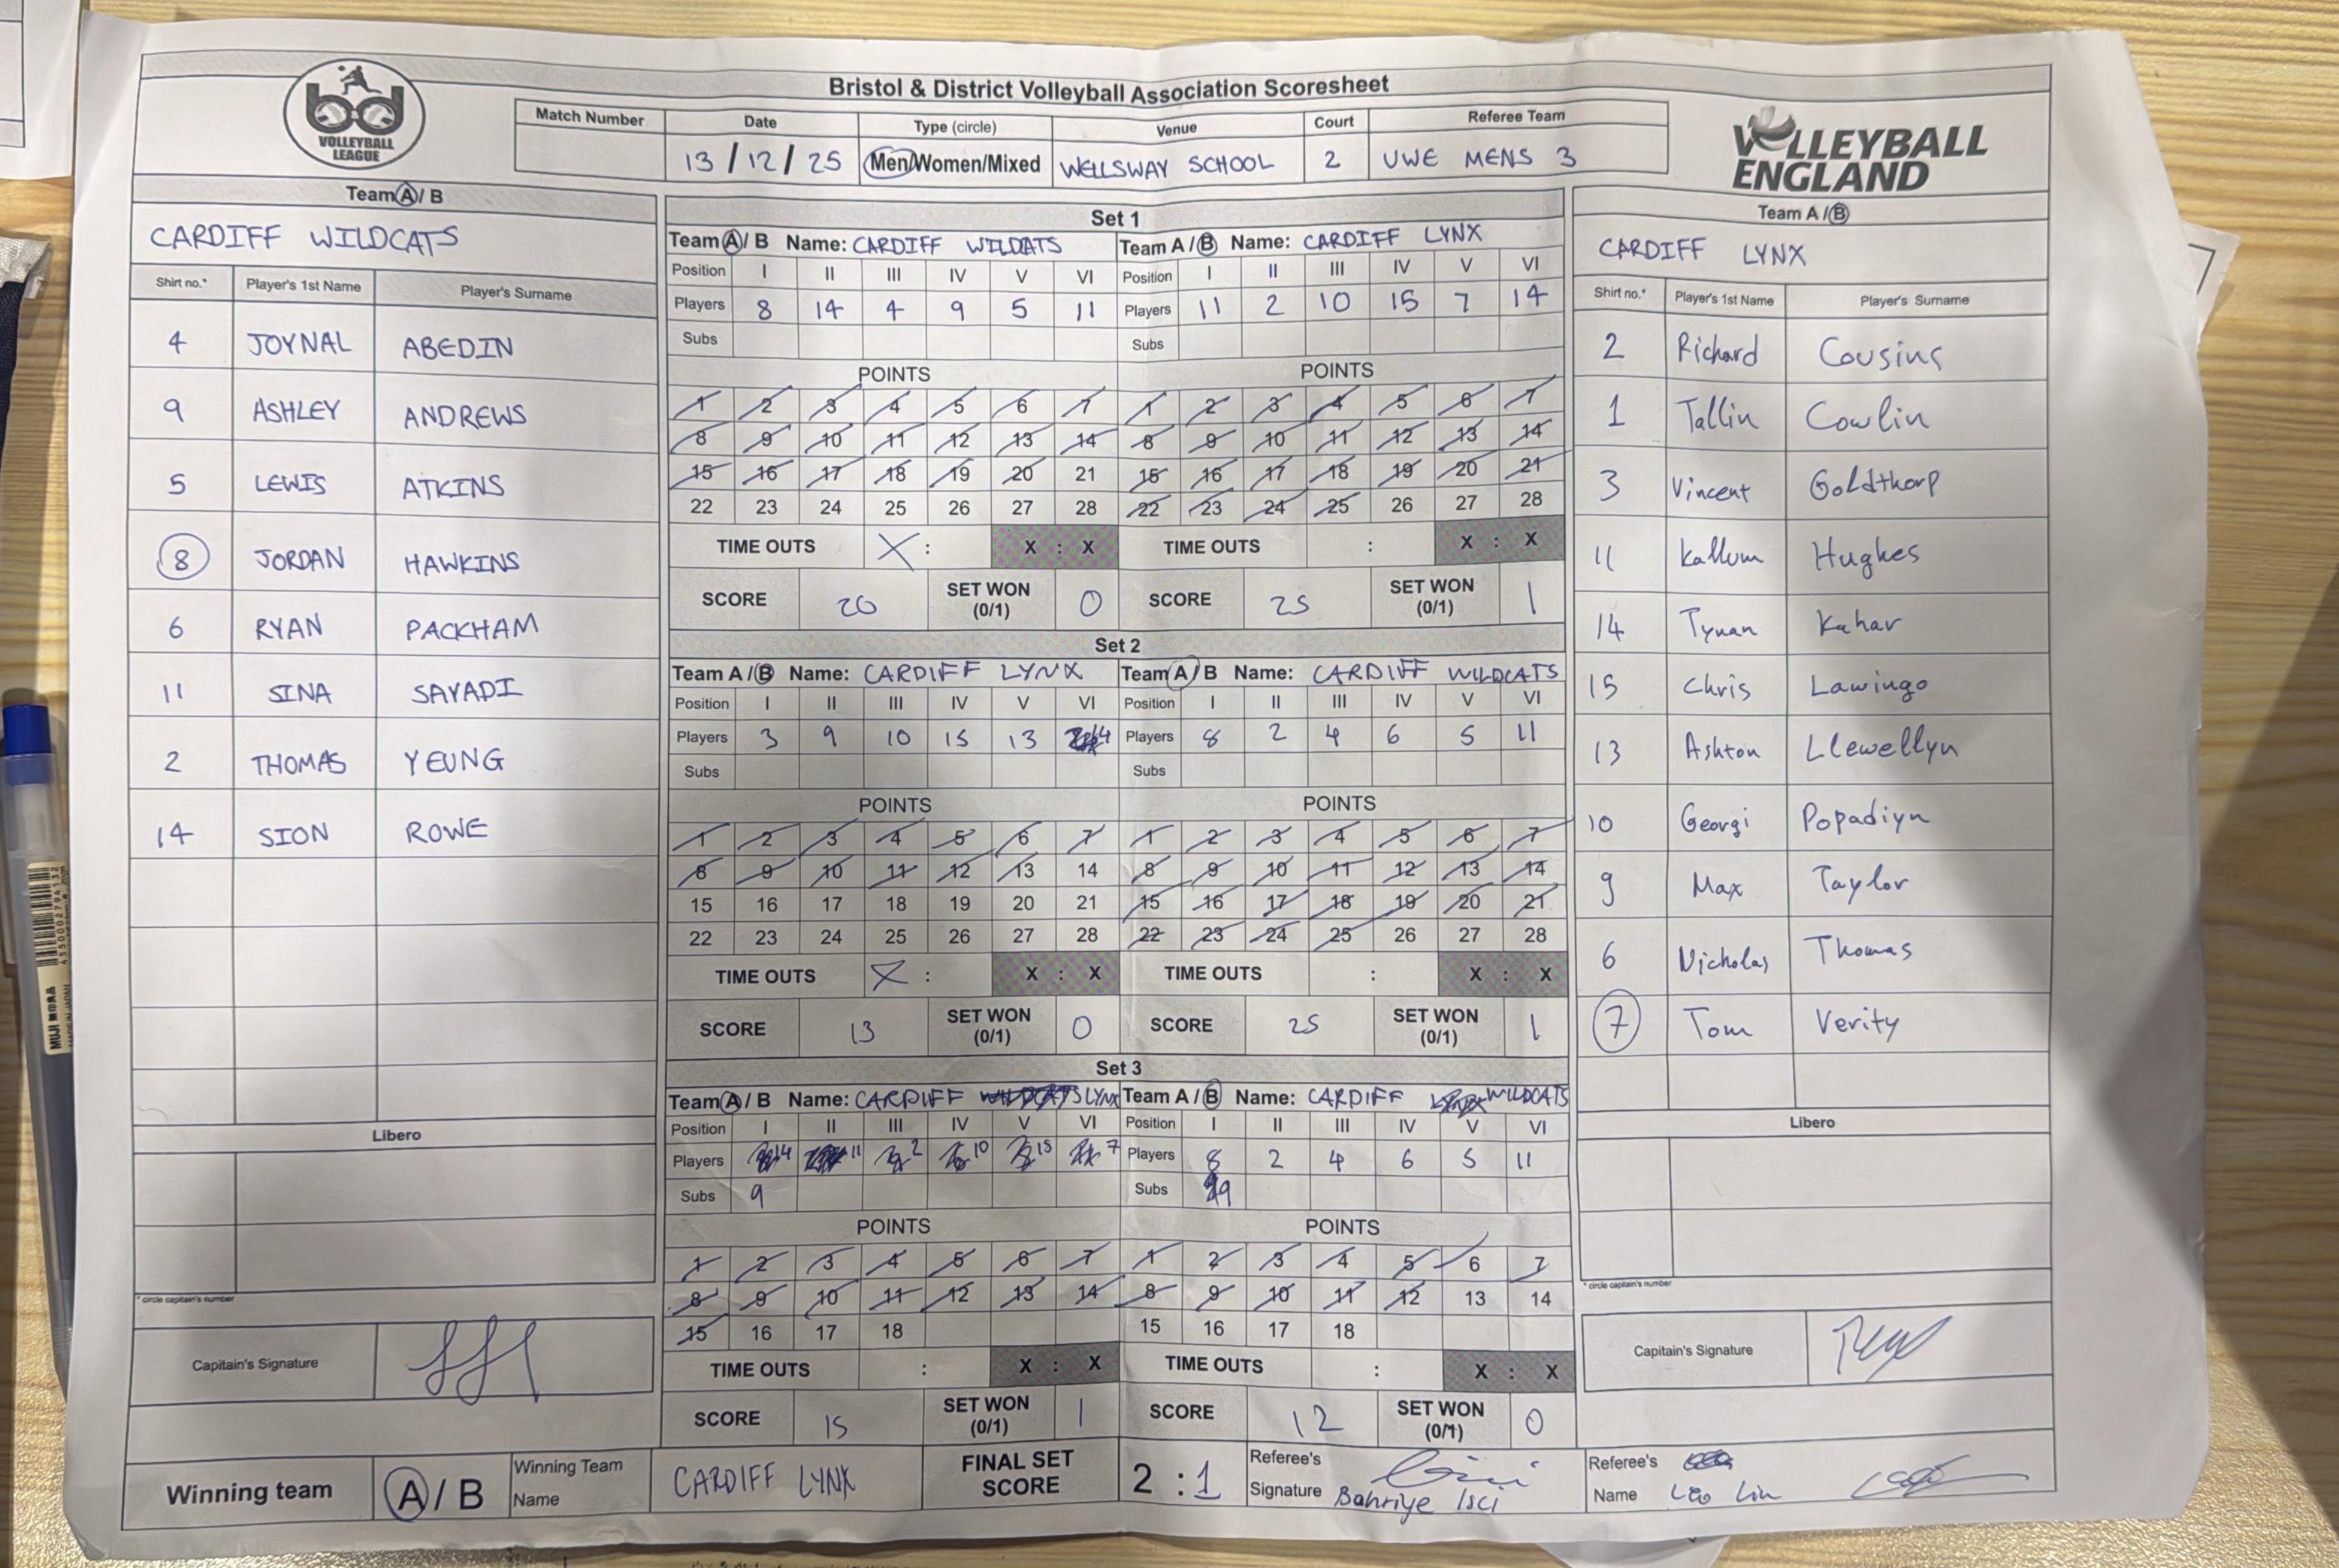 Bristol & District Volleyball Association Scoresheet
bd
VOLLEYBALL
LEAGUE
VOLLEYBALL
ENGLAND
Match Number Date Type (circle) Venue Court Referee Team
13/12/25 Men/Women/Mixed WELLSWAY SCHOOL 2 UWE MENS 3
Team A / B
CARDIFF WILDCATS
Shirt no.* Player's 1st Name Player's Surname
4 JOYNAL ABEDIN
9 ASHLEY ANDREWS
5 LEWIS ATKINS
8 JORDAN HAWKINS
6 RYAN PACKHAM
11 SINA SAYADI
2 THOMAS YEUNG
14 SION ROWE
Libero
* circle captain's number
Capitain's Signature
Set 1
Team A / B Name: CARDIFF WILDCATS Team A / B Name: CARDIFF LYNX
Position I II III IV V VI Position I II III IV V VI
Players 8 14 4 9 5 11 Players 11 2 10 15 7 14
Subs Subs
POINTS POINTS
1 2 3 4 5 6 7 1 2 3 4 5 6 7
8 9 10 11 12 13 14 8 9 10 11 12 13 14
15 16 17 18 19 20 21 15 16 17 18 19 20 21
22 23 24 25 26 27 28 22 23 24 25 26 27 28
TIME OUTS X : X : X TIME OUTS : X : X
SCORE 20 SET WON (0/1) 0 SCORE 25 SET WON (0/1) 1
Set 2
Team A / B Name: CARDIFF LYNX Team A / B Name: CARDIFF WILDCATS
Position I II III IV V VI Position I II III IV V VI
Players 3 9 10 15 13 14 Players 8 2 4 6 5 11
Subs Subs
POINTS POINTS
1 2 3 4 5 6 7 1 2 3 4 5 6 7
8 9 10 11 12 13 14 8 9 10 11 12 13 14
15 16 17 18 19 20 21 15 16 17 18 19 20 21
22 23 24 25 26 27 28 22 23 24 25 26 27 28
TIME OUTS X : X : X TIME OUTS : X : X
SCORE 13 SET WON (0/1) 0 SCORE 25 SET WON (0/1) 1
Set 3
Team A / B Name: CARDIFF WILDCATS LYNX Team A / B Name: CARDIFF LYNX WILDCATS
Position I II III IV V VI Position I II III IV V VI
Players 14 11 2 10 15 7 Players 8 2 4 6 5 11
Subs 9 Subs 9
POINTS POINTS
1 2 3 4 5 6 7 1 2 3 4 5 6 7
8 9 10 11 12 13 14 8 9 10 11 12 13 14
15 16 17 18 15 16 17 18
TIME OUTS : X : X TIME OUTS : X : X
SCORE 15 SET WON (0/1) 1 SCORE 12 SET WON (0/1) 0
Team A / B
CARDIFF LYNX
Shirt no.* Player's 1st Name Player's Surname
2 Richard Cousins
1 Tallin Cowlin
3 Vincent Goldthorp
11 Kallum Hughes
14 Tynan Kahar
15 Chris Lawingo
13 Ashton Llewellyn
10 Georgi Popadiyn
9 Max Taylor
6 Nicholas Thomas
7 Tom Verity
Libero
* circle captain's number
Capitain's Signature
Winning team A / B Winning Team Name CARDIFF LYNX FINAL SET SCORE 2 : 1
Referee's Signature Bahriye Isci
Referee's Name Leo Lin
MUJI
4550002794132